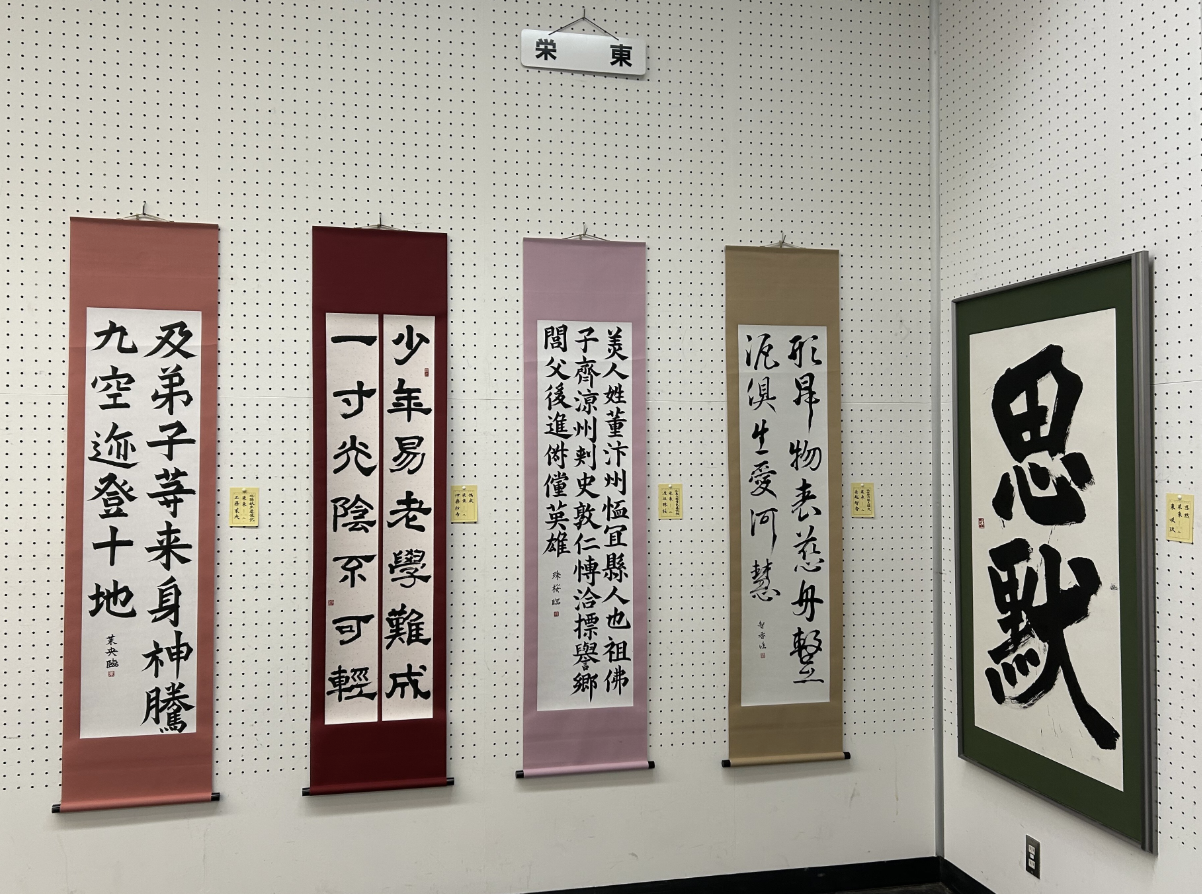 栄東
及弟子等来身神騰
九空迹登十地
少年易老學難成
一寸光陰不可輕
美人姓董汴州恤冝縣人也祖佛
子齊涼州刾史敦仁愽洽摽譽郷
閭父後進儔僮英雄
形昇物表慈舟整
泥俱生愛河慧
思默